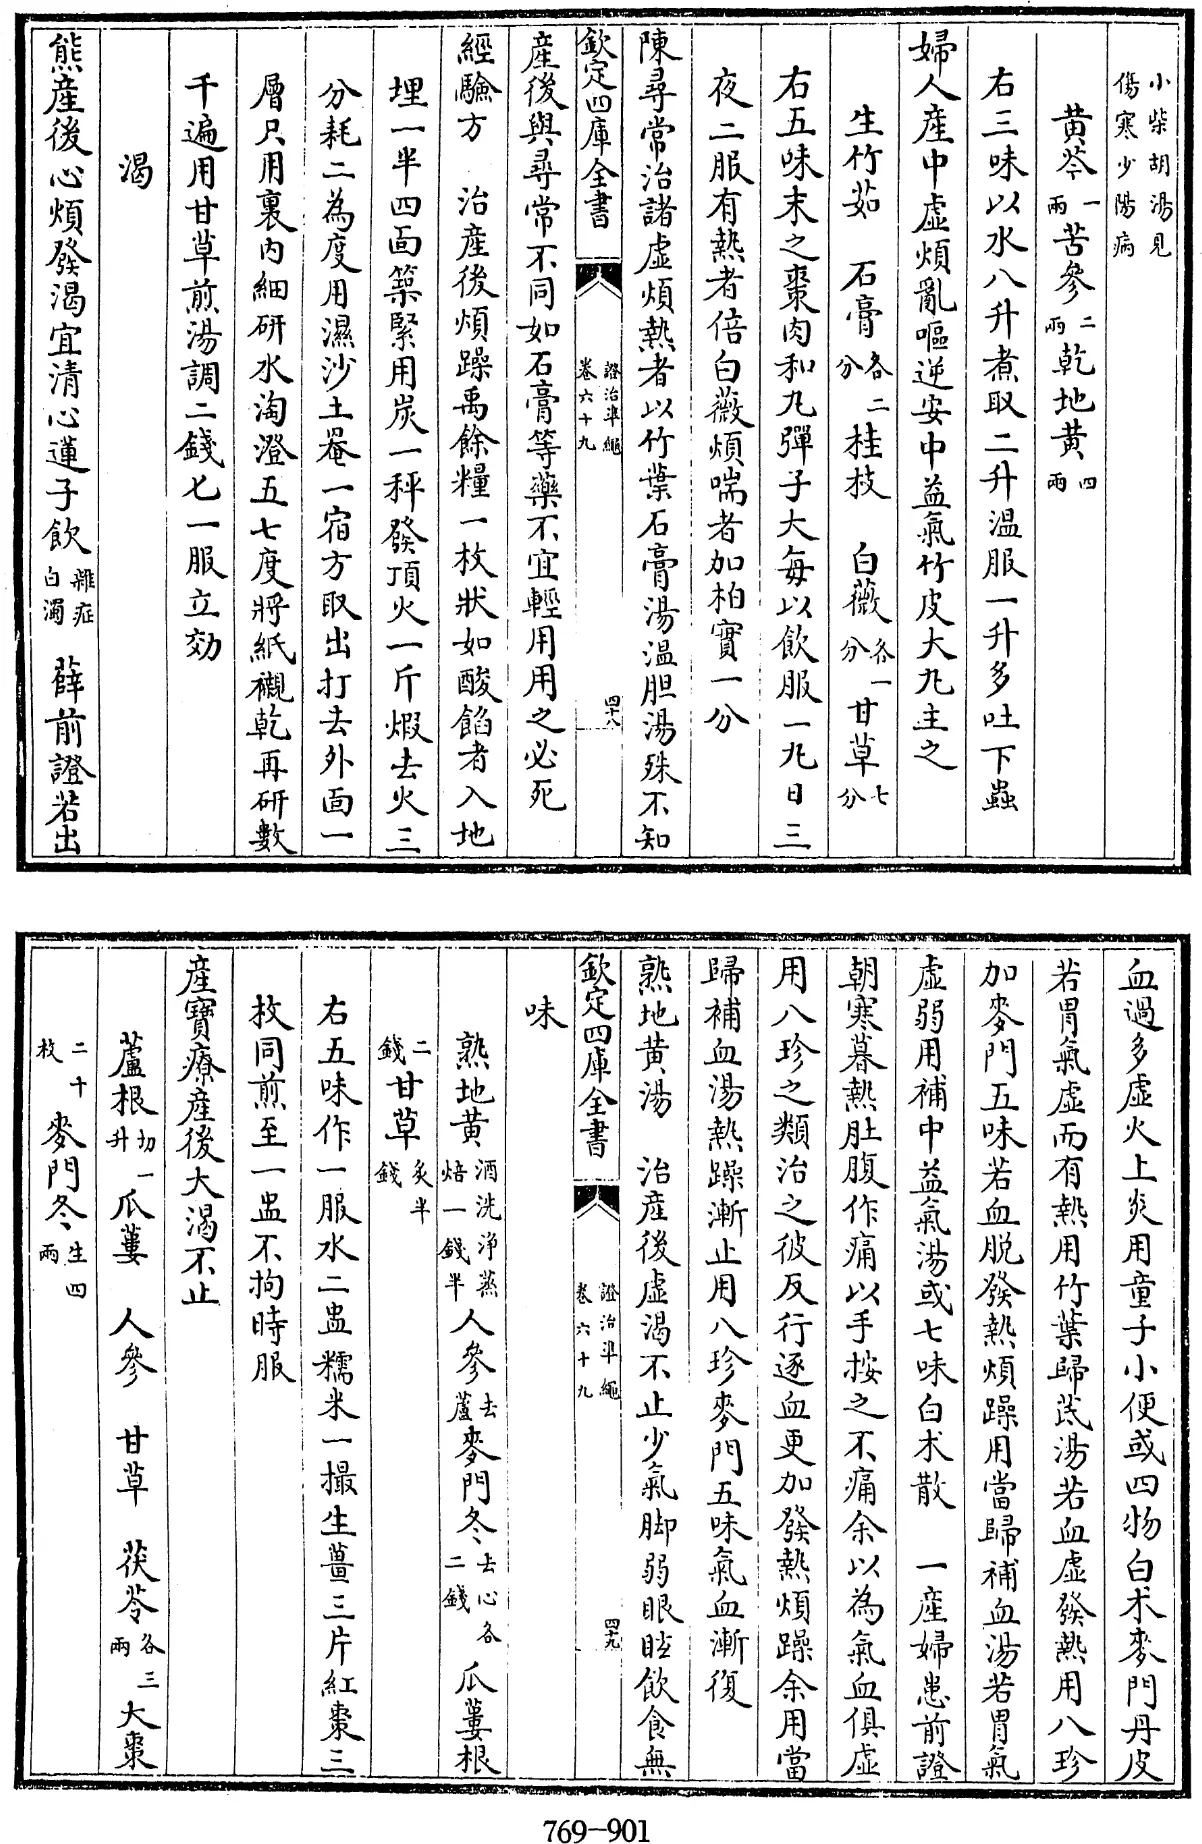 小柴胡湯見
傷寒少陽病
黄芩一兩苦參二兩乾地黄四兩
右三味以水八升煮取二升温服一升多吐下蟲
婦人產中虛煩亂嘔逆安中益氣竹皮大丸主之
生竹茹 石膏各二分桂枝 白薇各一分甘草七分
右五味末之棗肉和丸彈子大每以飲服一丸日三
夜二服有熱者倍白薇煩喘者加柏實一分
陳尋常治諸虛煩熱者以竹葉石膏湯温胆湯殊不知
欽定四庫全書 證治準繩 卷六十九 四十八
產後與尋常不同如石膏等藥不宜輕用用之必死
經驗方 治產後煩躁禹餘糧一枚狀如酸餡者入地
埋一半四面築緊用炭一秤發頂火一斤煆去火三
分耗二為度用濕沙土罨一宿方取出打去外面一
層只用裏内細研水淘澄五七度將紙襯乾再研數
千遍用甘草煎湯調二錢匕一服立効
渴
熊產後心煩發渴宜清心蓮子飲雜症白濁 薛前證若出
血過多虛火上炎用童子小便或四物白术麥門丹皮
若胃氣虛而有熱用竹葉歸茋湯若血虛發熱用八珍
加麥門五味若血脫發熱煩躁用當歸補血湯若胃氣
虛弱用補中益氣湯或七味白术散 一產婦患前證
朝寒暮熱肚腹作痛以手按之不痛余以為氣血俱虛
用八珍之類治之彼反行逐血更加發熱煩躁余用當
歸補血湯熱躁漸止用八珍麥門五味氣血漸復
熟地黄湯 治產後虛渴不止少氣脚弱眼眩飲食無
欽定四庫全書 證治準繩 卷六十九 四十九
味
熟地黄酒洗淨蒸焙一錢半人參去蘆麥門冬去心各二錢 瓜蔞根
二錢甘草炙半錢
右五味作一服水二盅糯米一撮生薑三片紅棗三
枚同煎至一盅不拘時服
產寶療產後大渴不止
蘆根切一升瓜蔞 人參 甘草 茯苓各三兩大棗
二十枚麥門冬生四兩
769-901